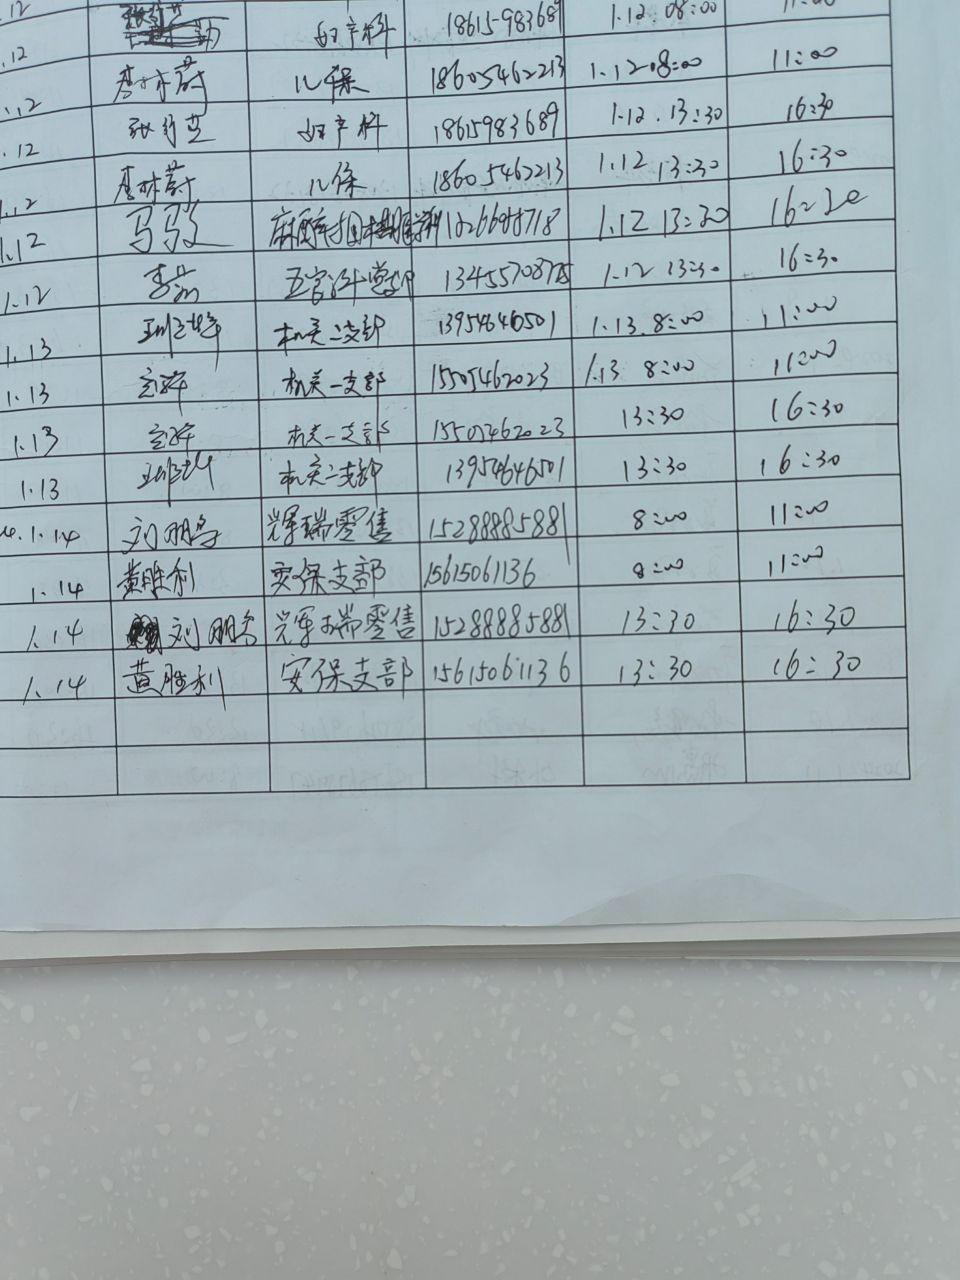 1.12 妇产科 18615983689 1.12.08:00 11:00
1.12 李林蔚 儿保 18605462213 1.12.08:00 11:00
1.12 妇产科 18615983689 1.12.13:30 16:30
1.12 李林蔚 儿保 18605462213 1.12 13:30 16:30
1.12 1.12 13:30 16:30
1.12 1.12 13:30 16:30
1.13 机关二支部 13954646501 1.13.8:00 11:00
1.13 机关一支部 15505462023 1.13 8:00 11:00
1.13 机关一支部 15505462023 13:30 16:30
1.13 机关二支部 13954646501 13:30 16:30
1.14 刘明 辉瑞零售 15288885881 8:00 11:00
1.14 黄胜利 安保支部 15615061136 8:00 11:00
1.14 刘明 辉瑞零售 15288885881 13:30 16:30
1.14 黄胜利 安保支部 15615061136 13:30 16:30